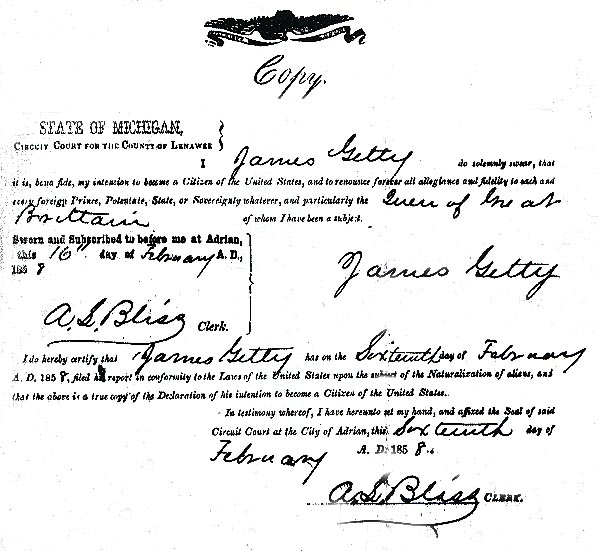 Copy.
STATE OF MICHIGAN,
CIRCUIT COURT FOR THE COUNTY OF LENAWEE
I James Getty do solemnly swear, that
it is, bona fide, my intention to become a Citizen of the United States, and to renounce forever all allegiance and fidelity to each and
every foreign Prince, Potentate, State, or Sovereignty whatever, and particularly the Queen of Great
Brittain of whom I have been a subject.
Sworn and Subscribed to before me at Adrian,
this 16" day of February A. D.,
185 8
James Getty
A. L. Bliss Clerk.
I do hereby certify that James Getty has on the Sixteenth day of February
A. D. 185 8, filed his report in conformity to the Laws of the United States upon the subject of the Naturalization of aliens, and
that the above is a true copy of the Declaration of his intention to become a Citizen of the United States.
In testimony whereof, I have hereunto set my hand, and affixed the Seal of said
Circuit Court at the City of Adrian, this Sixteenth day of
February A. D. 185 8.
A. L. Bliss CLERK.